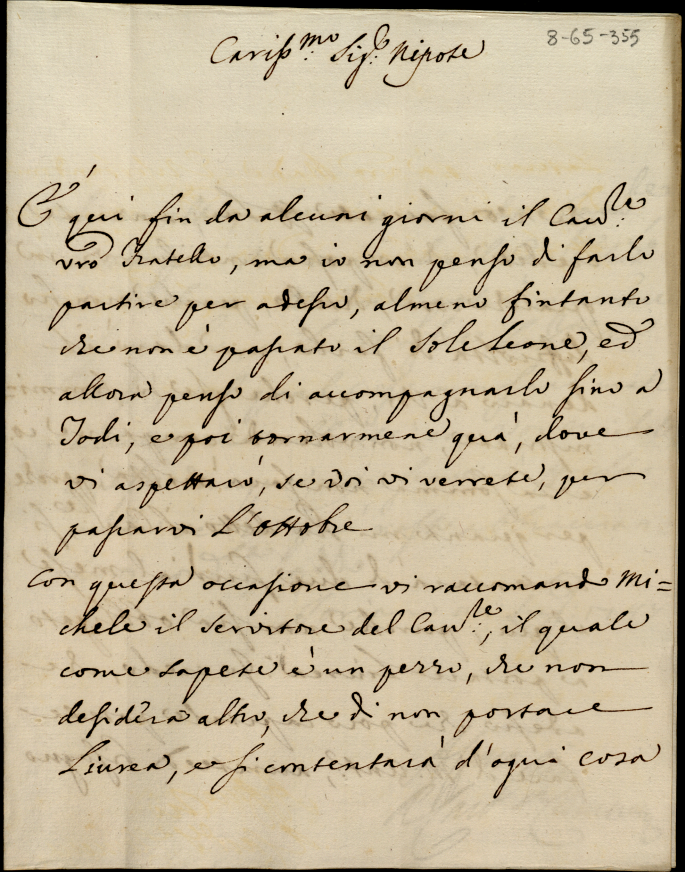 8-65-355
Cariss.mo Sig.r Nipote
È qui fin da alcuni giorni il Cav.re
vro Fratello, ma io non penso di farlo
partire per adesso, almeno fintanto
che non è passato il Sole Leone, ed
allora penso di accompagnarlo sino a
Todi, e poi tornarmene quà, dove
vi aspettarò, se voi vi verrete, per
passarvi l'ottobre
Con questa occasione vi raccomando Mi=
chele il servitore del Cav.re, il quale
come sapete è un pezzo, che non
desidera altro, che di non portare
Livrea, e si contentarà d'ogni cosa